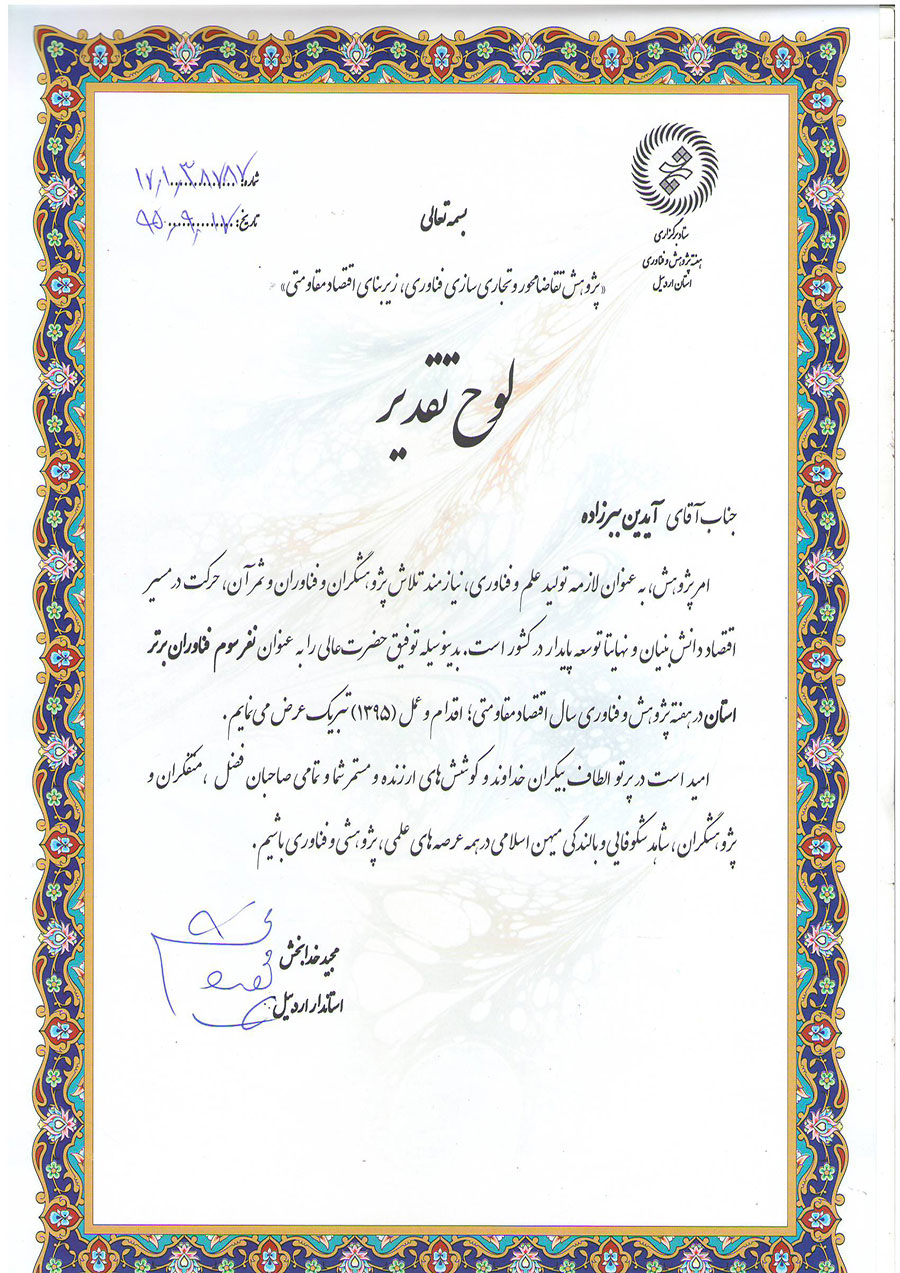 ستاد برگزاری
هفته پژوهش و فناوری
استان اردبیل
شماره: ۱۷/۱/۳۸۷۸۷
تاریخ: ۹۵/۹/۱۷
بسمه تعالی
«پژوهش تقاضا محور و تجاری سازی فناوری، زیربنای اقتصاد مقاومتی»
لوح تقدیر
جناب آقای آیدین ببرزاده
امر پژوهش، به عنوان لازمه تولید علم و فناوری، نیازمند تلاش پژوهشگران و فناوران و ثمر آن، حرکت در مسیر
اقتصاد دانش بنیان و نهایتا توسعه پایدار در کشور است. بدینوسیله توفیق حضرت عالی را به عنوان نفر سوم فناوران برتر
استان در هفته پژوهش و فناوری سال اقتصاد مقاومتی؛ اقدام و عمل (۱۳۹۵) تبریک عرض می نمایم.
امید است در پرتو الطاف بیکران خداوند و کوشش های ارزنده و مستمر شما و تمامی صاحبان فضل ، متفکران و
پژوهشگران، شاهد شکوفایی و بالندگی میهن اسلامی در همه عرصه های علمی، پژوهشی و فناوری باشیم.
مجید خدابخش
استاندار اردبیل